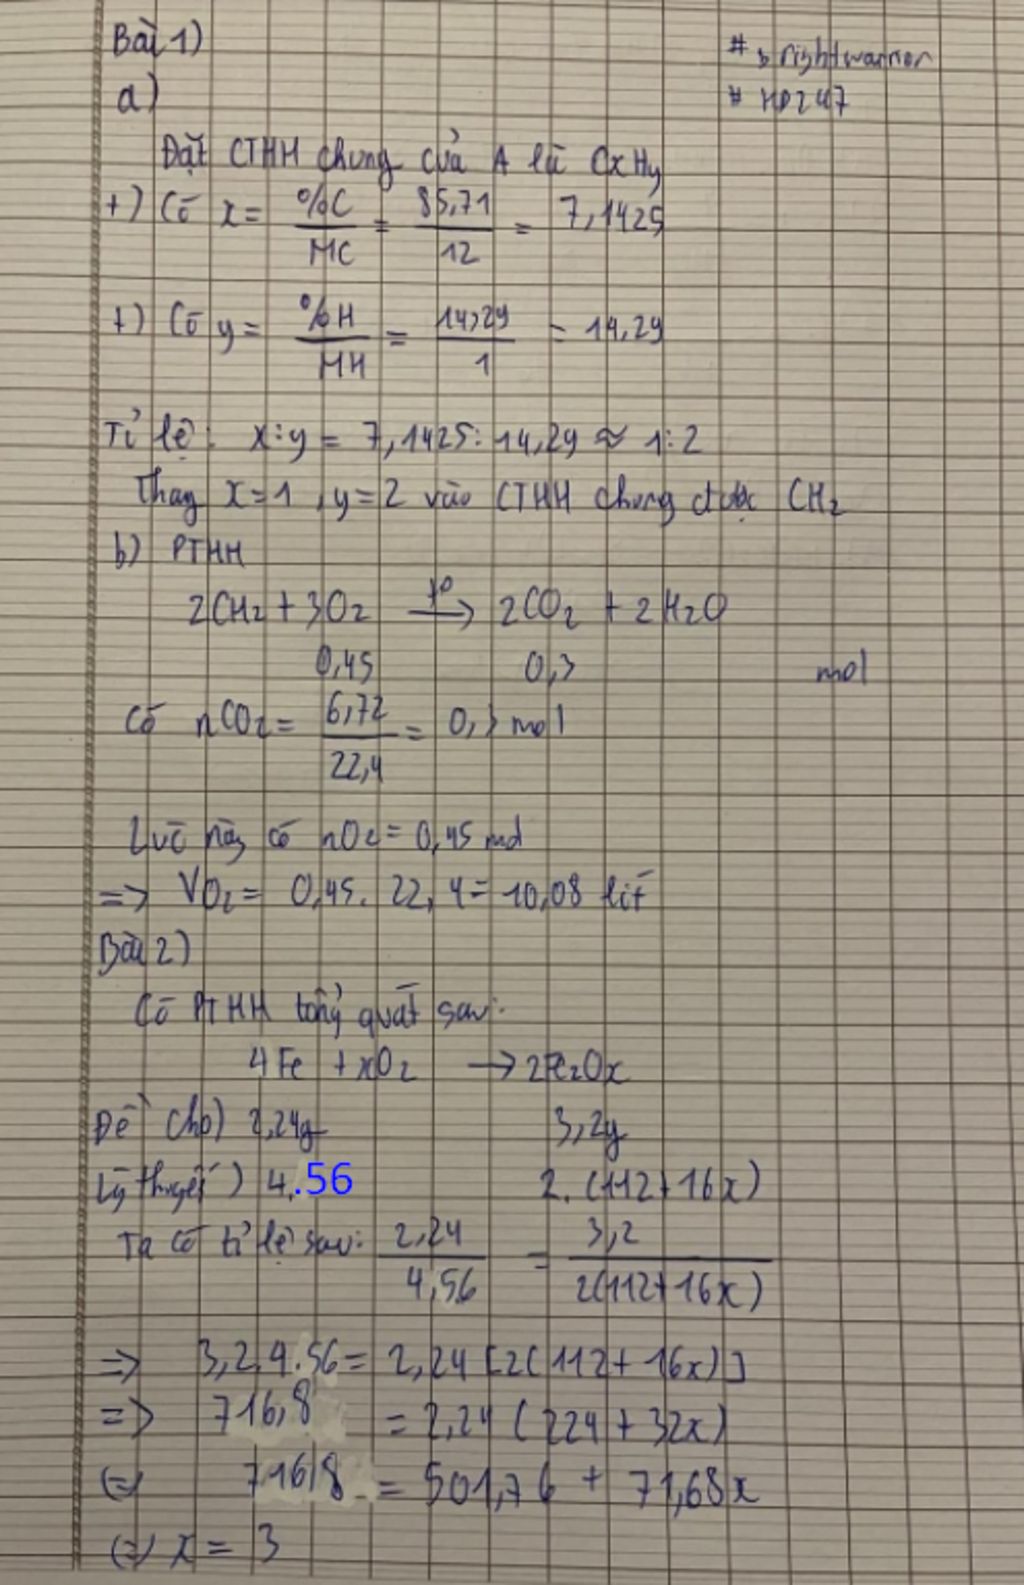 Bài 1)
# brightwarrior
# HD247
a)
Đặt CTHH chung của A là CxHy
+) Có x = %C / MC = 85,71 / 12 = 7,1425
+) Có y = %H / MH = 14,29 / 1 = 14,29
Tỉ lệ: x:y = 7,1425:14,29 ≈ 1:2
Thay x=1, y=2 vào CTHH chung được CH2
b) PTHH
2CH2 + 3O2 t° → 2CO2 + 2H2O
0,45 0,3 mol
Có nCO2 = 6,72 / 22,4 = 0,3 mol
Lúc này có nO2 = 0,45 mol
=> VO2 = 0,45. 22,4 = 10,08 lít
Bài 2)
Có PTHH tổng quát sau:
4Fe + xO2 → 2Fe2Ox
Đề cho) 2,24g 3,2g
Lý thuyết) 4.56 2.(112+16x)
Ta có tỉ lệ sau: 2,24 / 4,56 = 3,2 / 2(112+16x)
=> 3,2.4.56 = 2,24 [2(112+16x)]
=> 716,8 = 2,24 (224 + 32x)
(=) 716,8 = 501,76 + 71,68x
(=) x = 3